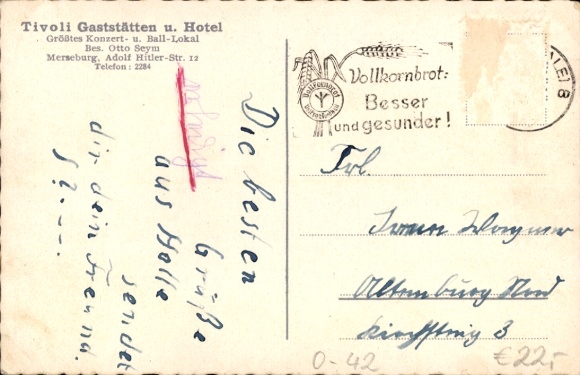 Tivoli Gaststätten u. Hotel
Größtes Konzert- u. Ball-Lokal
Bes. Otto Seym
Merseburg, Adolf Hitler-Str. 12
Telefon: 2284
Vollkornbrot:
Besser
und gesunder!
ALE) 8
Die besten
Grüße
aus Halle
sendet
dir dein Freund.
S?---
Frl.
Wagner
Altenburg Nord
3
0-42
€22,-